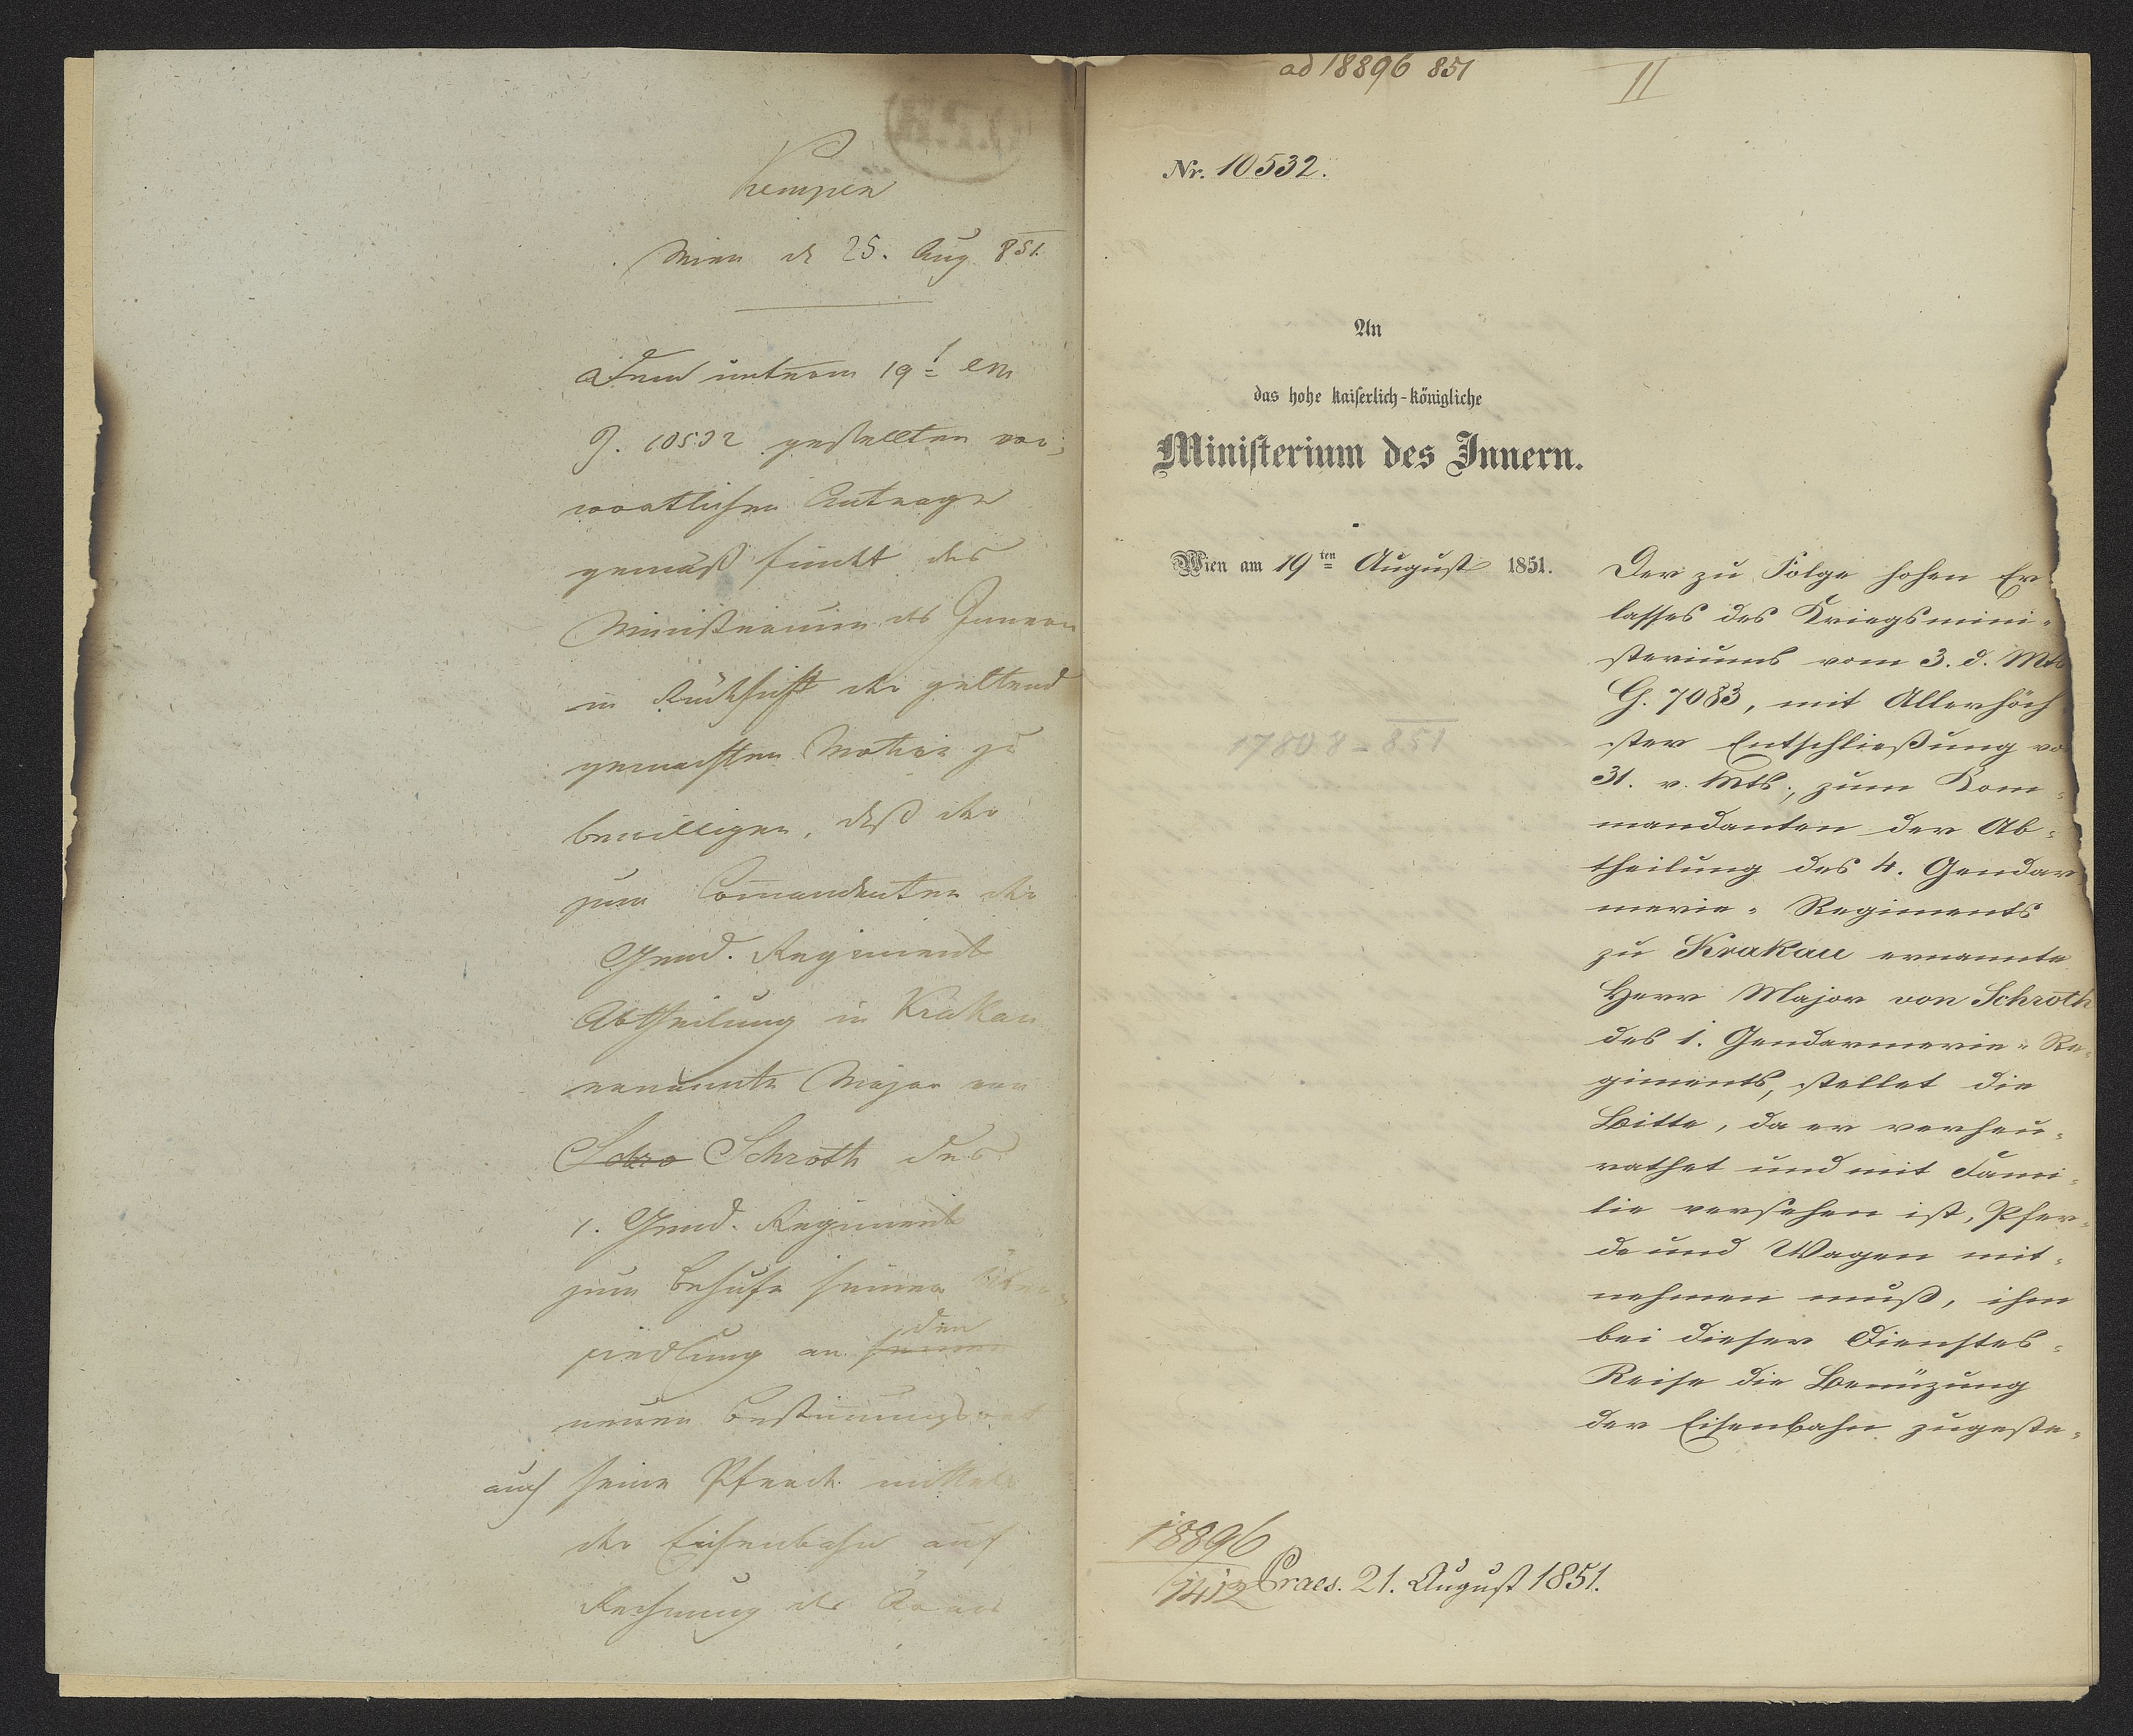 Kempen
Wien d 25. Aug 851.
Dem unterm 19t. l.M.
Z. 10532 gestellten vor,
wortlichen Antrage
gemäß findet das
Ministerium des Innern
in Rücksicht der geltend
gemachten Motive zu
bewilligen, daß der
zum Commandanten der
Gend. Regiments
Abtheilung in Krakau
ernannte Major von
Schro Schroth des
1. Gend. Regiments
zum Behufe seiner Über,
siedlung an seinen den
neuen Bestimmungsort
auch seine Pferde mittels
der Eisenbahn auf
Rechnung des Ärars
ad 18896 851
II
Nr. 10532.
An
das hohe kaiserlich-königliche
Ministerium des Innern.
Wien am 19ten August 1851.
17808-851
Der zu Folge hohen Er
lasses des Kriegsmini-
steriums vom 3. d. Mts
G. 7083, mit Allerhöch
ster Entschließung vo
31. v. Mts., zum Kom-
mandanten der Ab-
theilung des 4. Gendar
merie-Regiments
zu Krakau ernannte
Herr Major von Schroth
des 1. Gendarmerie-Re-
giments, stellet die
Bitte, da er verheu-
rathet und mit Fami-
lie versehen ist, Pfer-
de und Wagen mit-
nehmen muß, ihm
bei dieser Dienstes-
Reise die Benüzung
der Eisenbahn zugeste-
18896
1412
Praes. 21. August 1851.